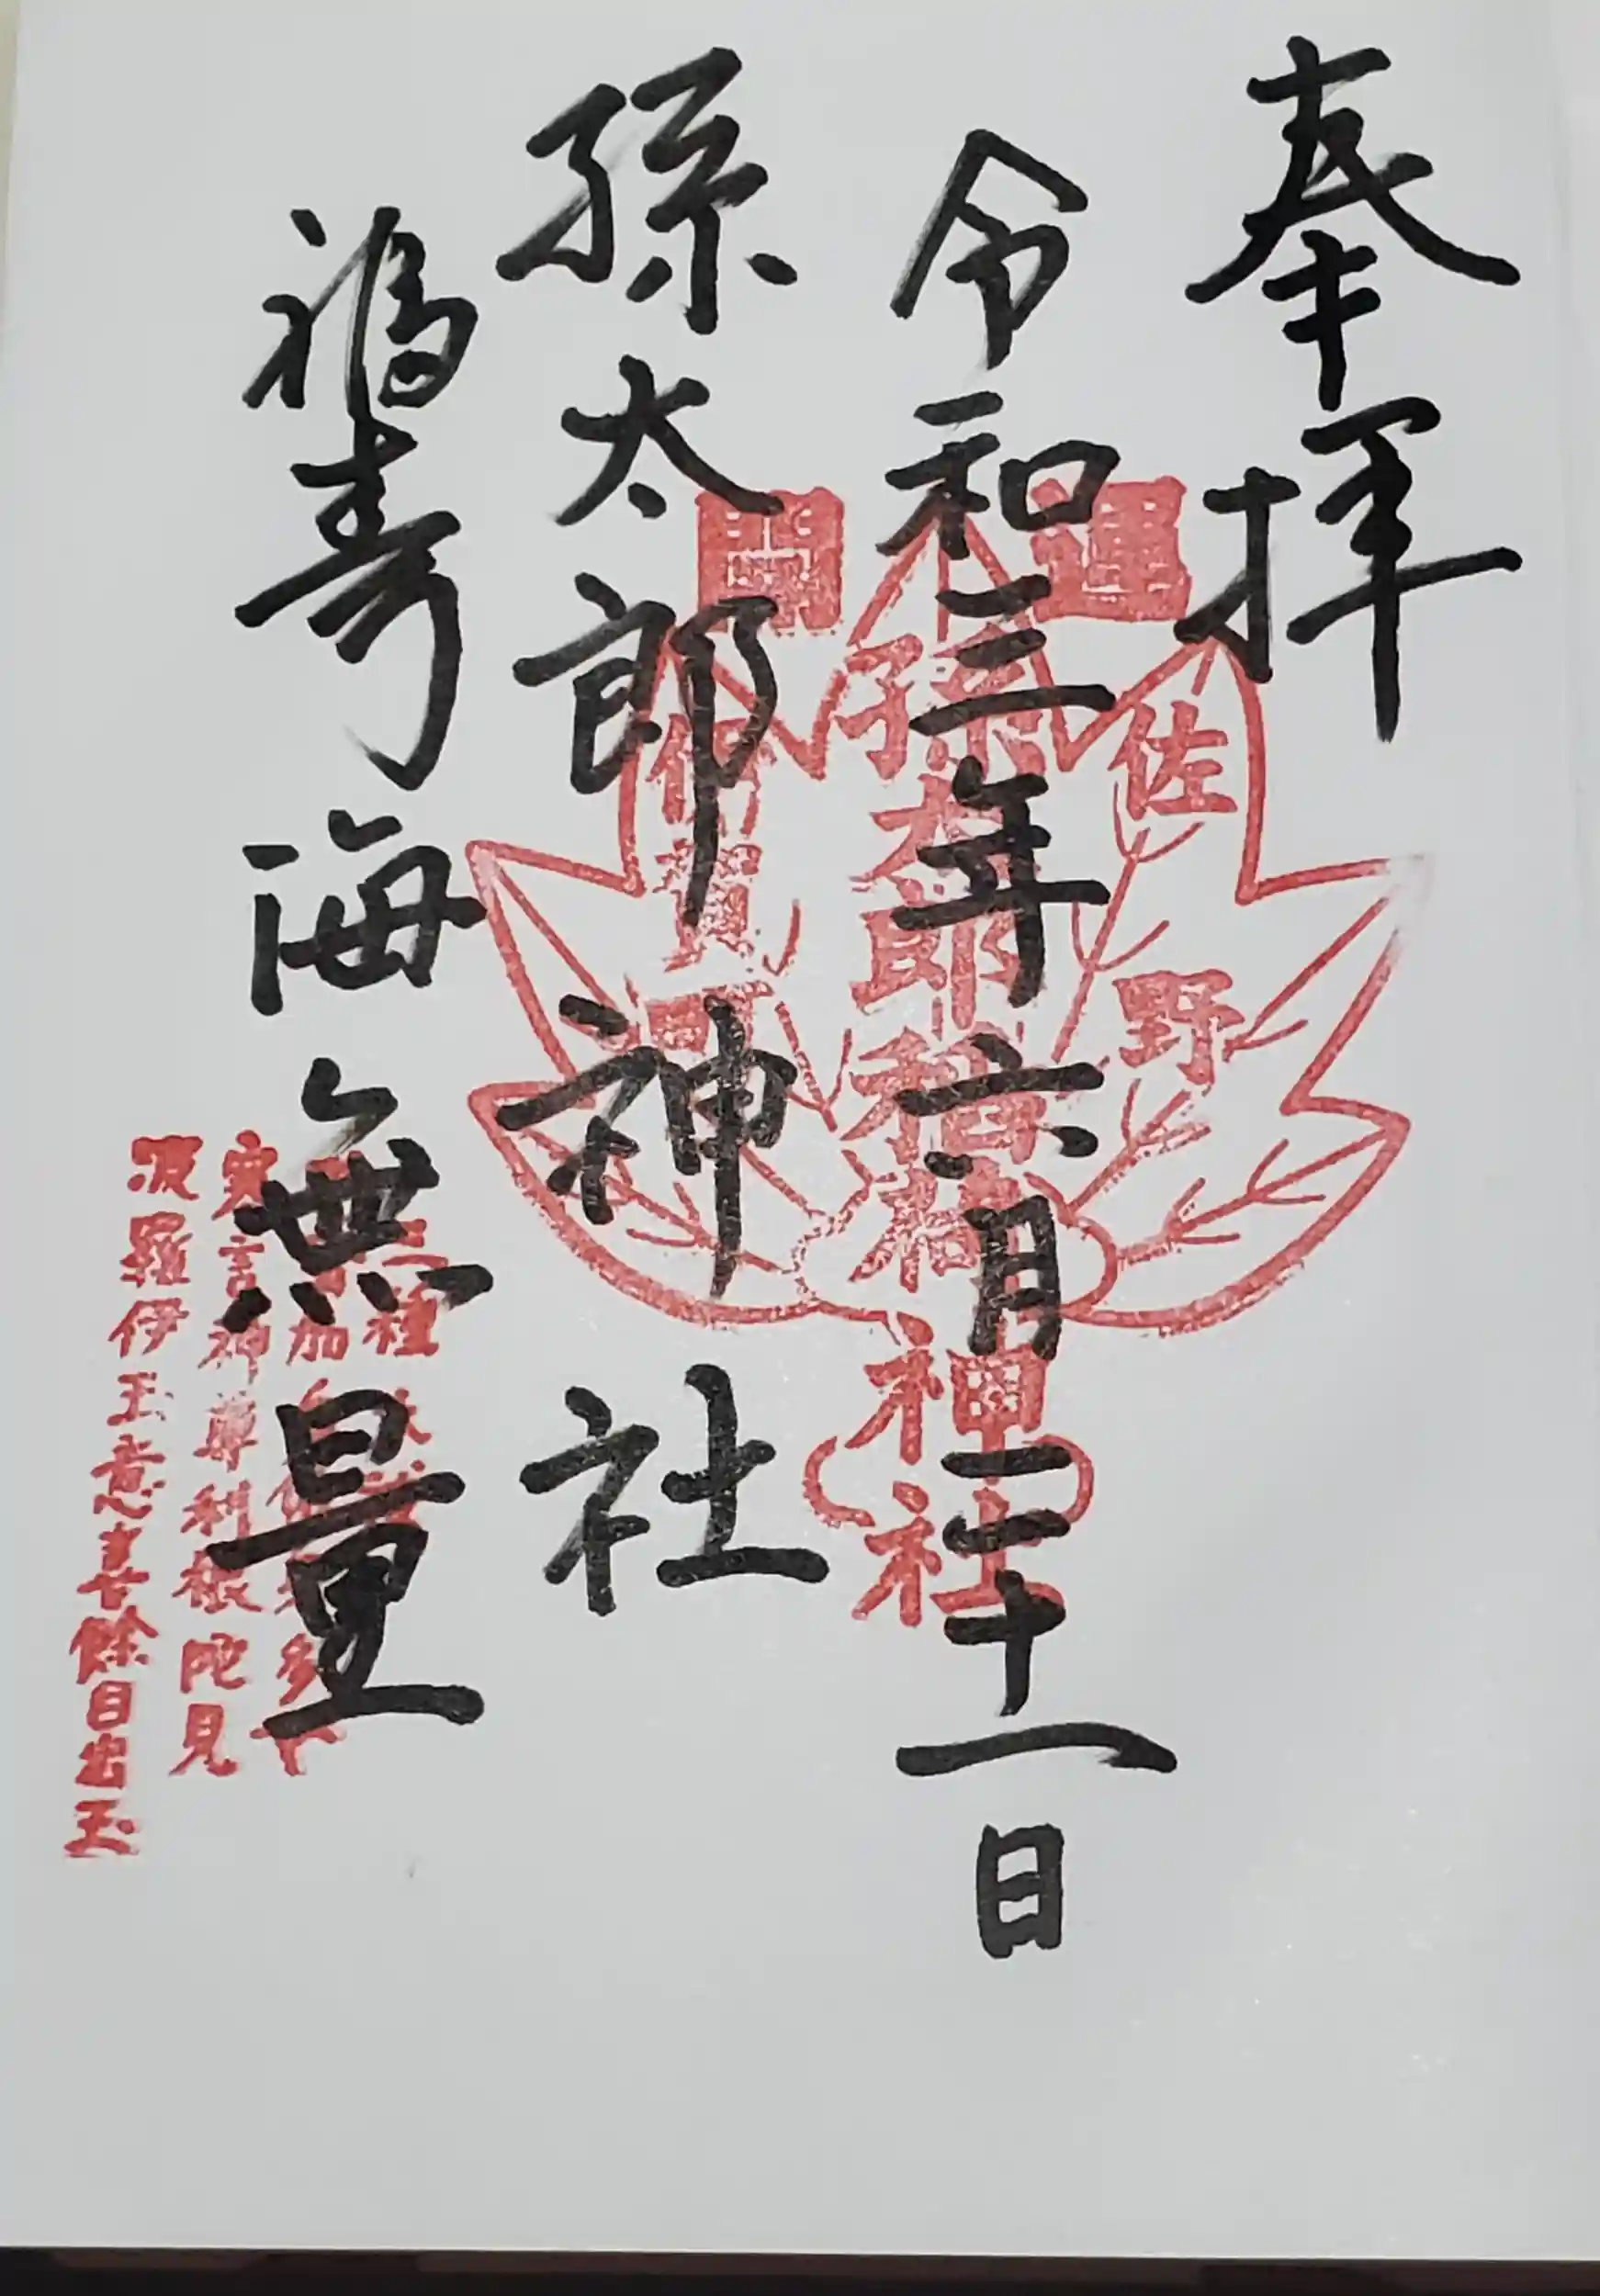 奉拝
令和三年六月二十一日
孫太郎神社
福寿海無量
開運
佐野
孫太郎稲荷神社
伊賀
寒言神尊利根陀見
波羅伊玉意喜餘目出玉